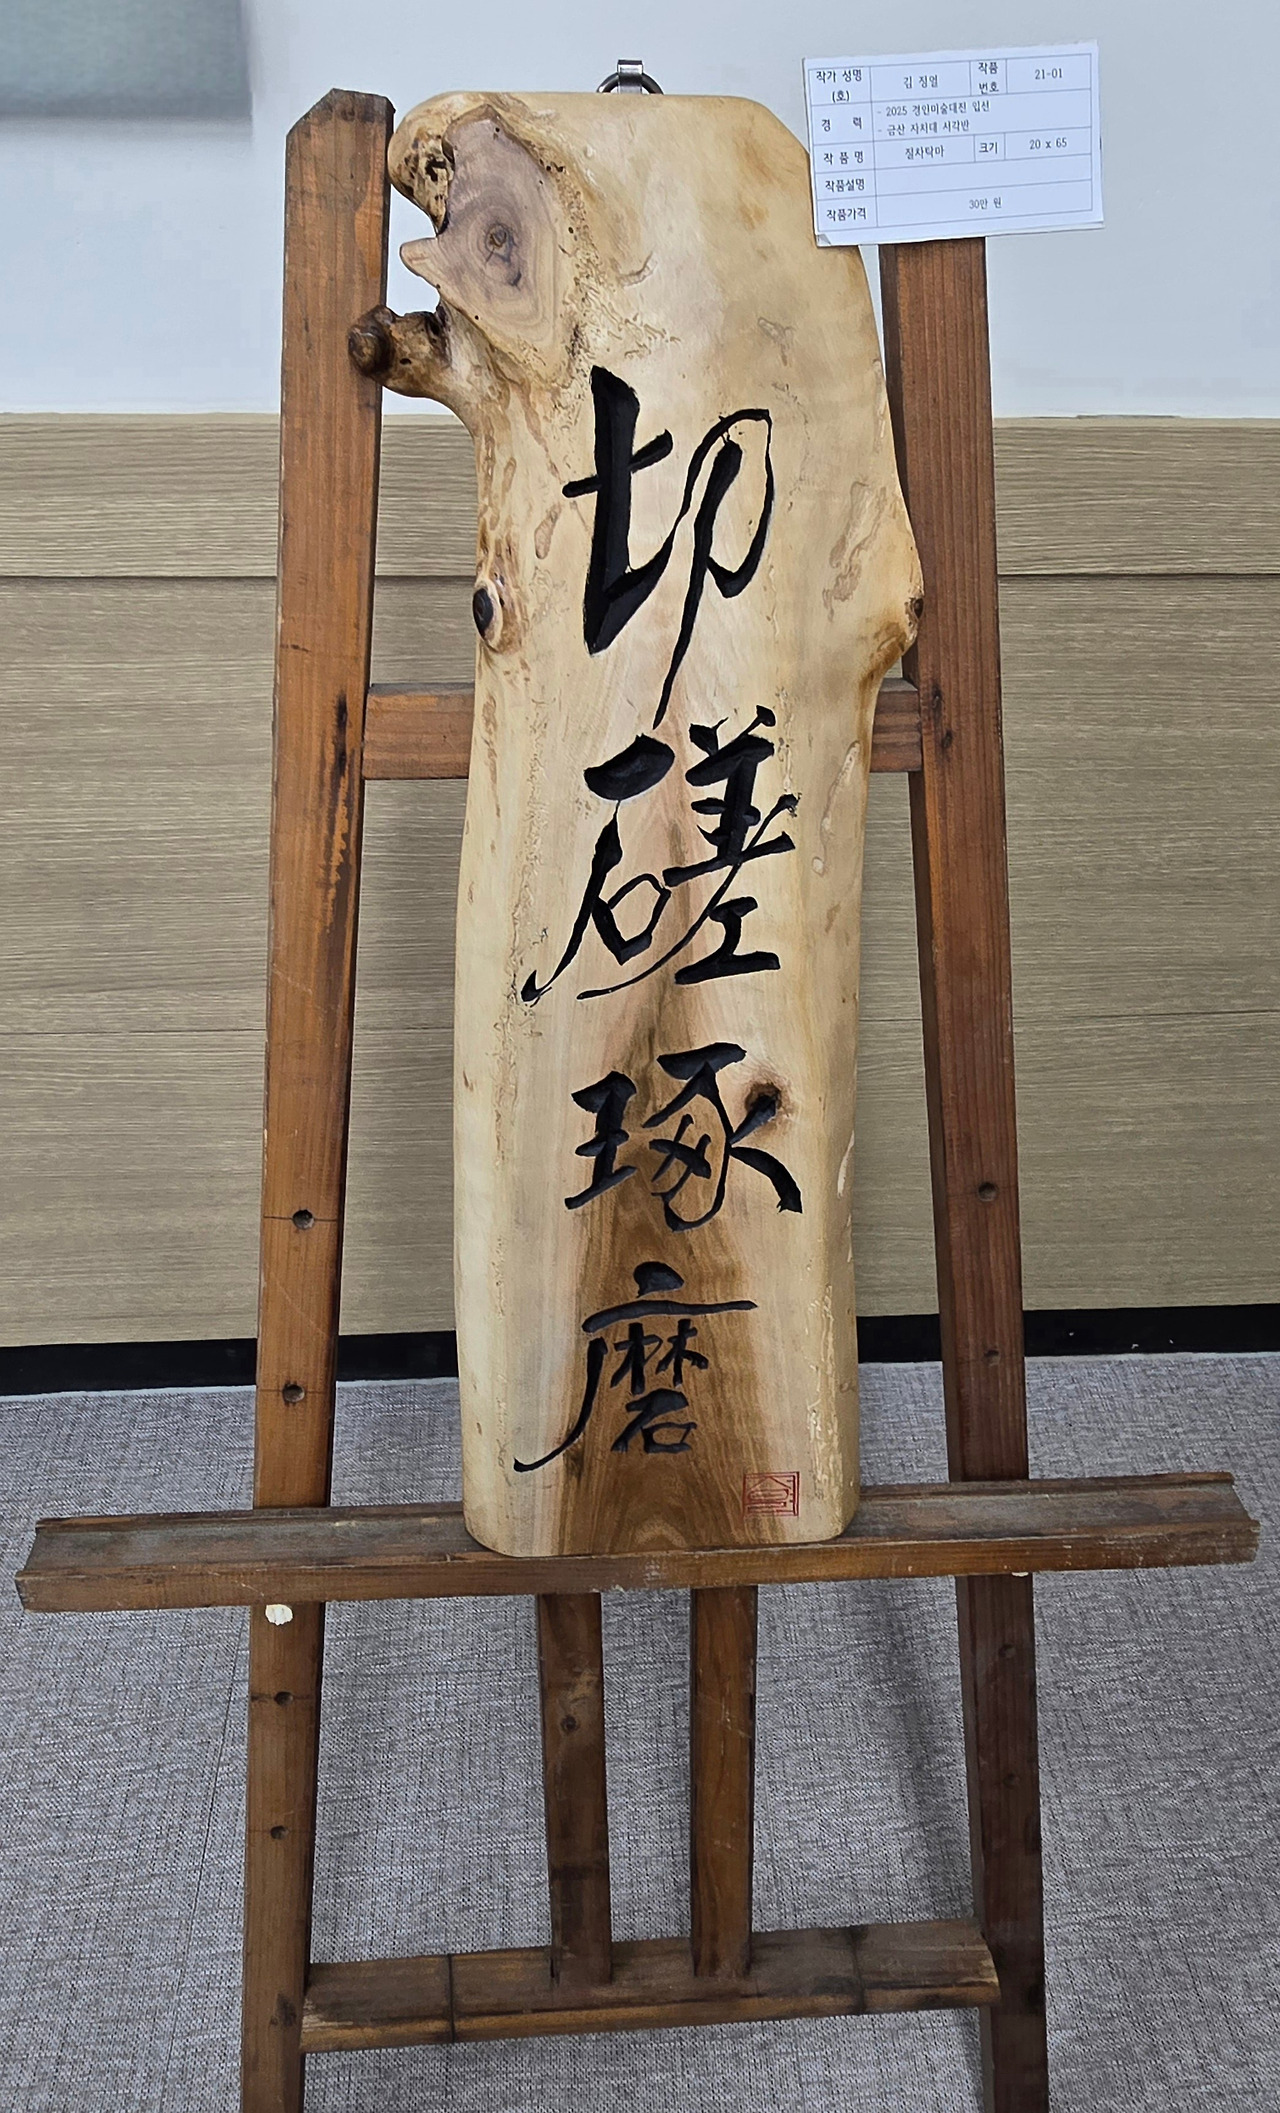 切磋琢磨
작가 성명 (호) 김 정열 작품 번호 21-01
경 력 - 2025 경인미술대전 입선
- 금산 자치대 서각반
작 품 명 절차탁마 크기 20 x 65
작품설명
작품가격 30만 원